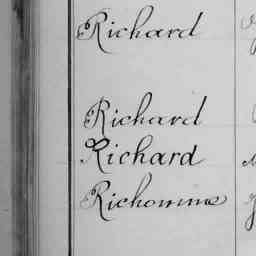 Richard
Richard
Richard
Richomme